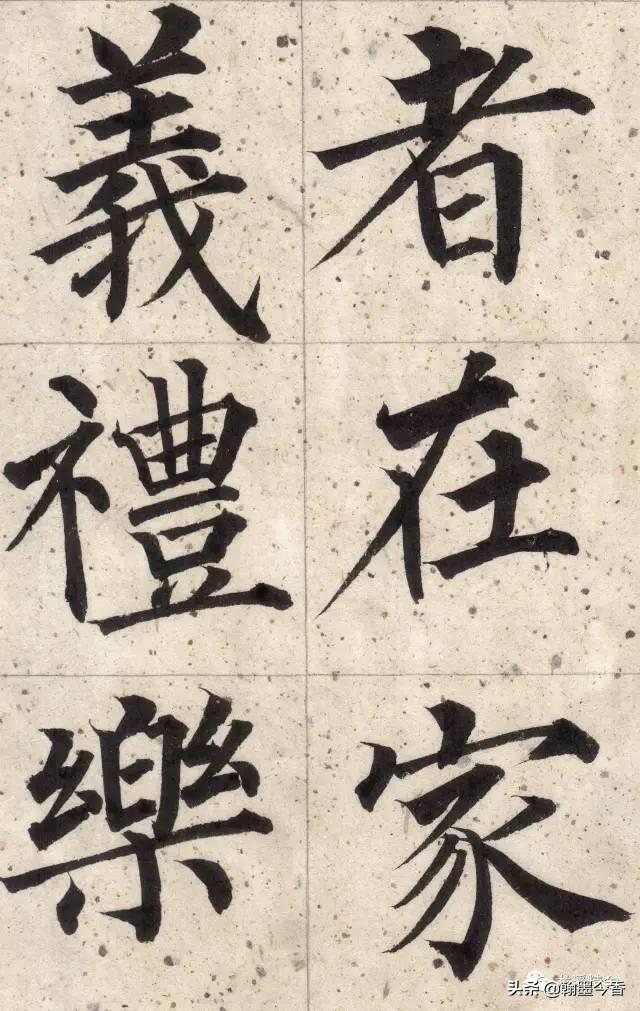 者在家
義禮樂
头条@翰墨今香